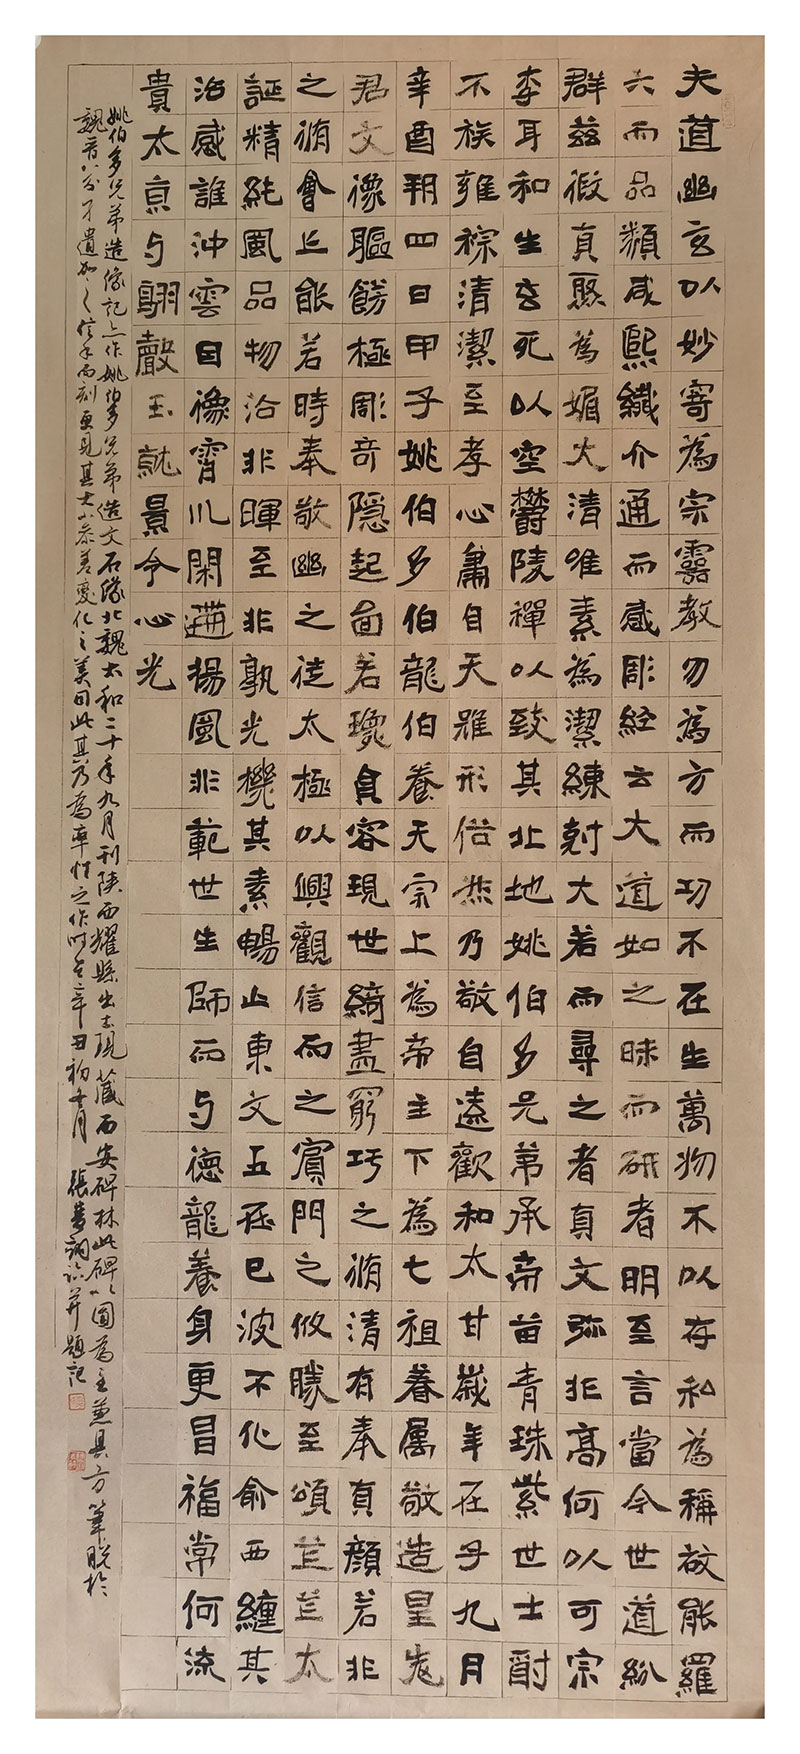 夫道幽玄以妙寄為宗靈教勿為方而功不在生萬物不以存私為稱故能羅
六而品類咸熙纖介通而感彫經云大道如之昧而研者明至言當今世道紛
群茲徵真聚為媚大清唯素為潔練剋大若而尋之者真文弥非高何以可宗
李耳和生玄死以空欝陵禪以致其北地姚伯多兄弟承帝苗青珠紫世士酎
不族雍粽清潔至孝心肅自天雅形俗然乃敬自遠歡和太廿歲年在子九月
辛酉朔四日甲子姚伯多伯龍伯養天宗上為帝主下為七祖眷属敬造皇先
君文像軀餝極彫奇隱起啚若瓌真容現世綺盡窮巧之脩清有奉真顏若非
之脩會上能若時奉敬幽之徒太極以興觀信而之賓門之攸勝至頌芒芒太
誕精純風品物沿非暉至非孰光機其素暢止東文五丕已波不化俞西纏其
治感誰沖雲目像霄以閑遘揚風非範世生師而与德龍養身更昌福常何流
貴太京与翾聲玉就景今心光
姚伯多兄弟造像記亦作姚伯多兄弟造文石像北魏太和二十年九月刊陝西耀縣出土現藏西安碑林此碑以圓為主兼具方筆脫於
魏晋八分才遺如之信手而刻更見其大小參差變化之美因此其乃為率性之作時至辛丑初冬月 張 并題記